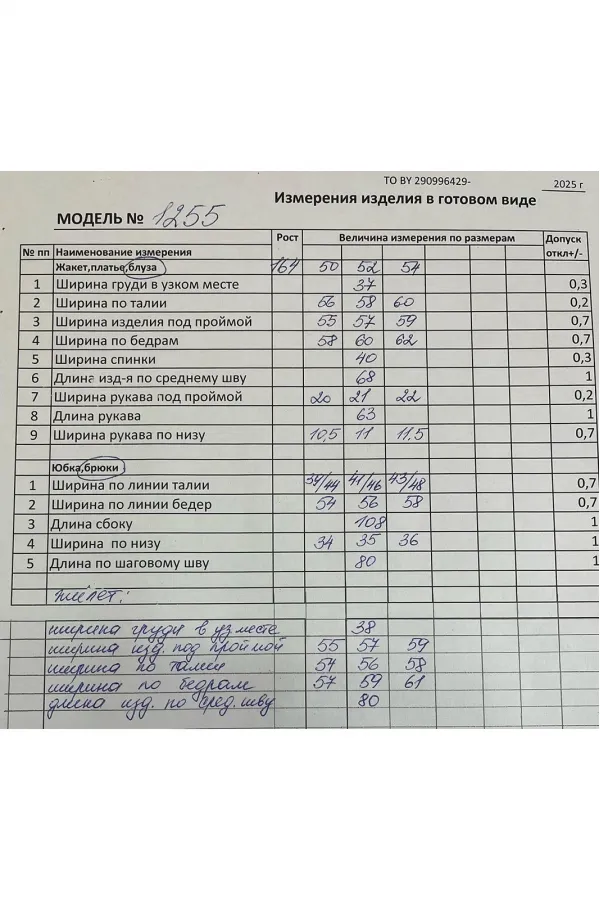 ТО BY 290996429-
2025 г
Измерения изделия в готовом виде
МОДЕЛЬ № 1255
№ пп Наименование измерения Рост Величина измерения по размерам Допуск откл+/-
Жакет,платье,блуза 164 50 52 54
1 Ширина груди в узком месте 37 0,3
2 Ширина по талии 56 58 60 0,2
3 Ширина изделия под проймой 55 57 59 0,7
4 Ширина по бедрам 58 60 62 0,7
5 Ширина спинки 40 0,3
6 Длина изд-я по среднему шву 68 1
7 Ширина рукава под проймой 20 21 22 0,2
8 Длина рукава 63 1
9 Ширина рукава по низу 10,5 11 11,5 0,7
Юбка,брюки
1 Ширина по линии талии 39/44 41/46 43/48 0,7
2 Ширина по линии бедер 54 56 58 0,7
3 Длина сбоку 108 1
4 Ширина по низу 34 35 36 1
5 Длина по шаговому шву 80 1
жилет:
ширина груди в уз месте 38
ширина изд. под проймой 55 57 59
ширина по талии 54 56 58
ширина по бедрам 57 59 61
длина изд. по сред. шву 80